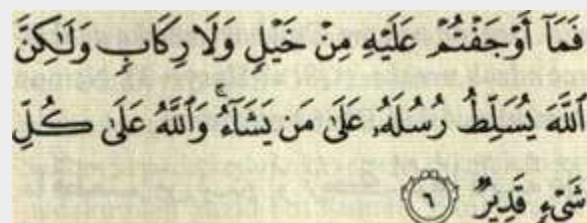 فَمَآ أَوْجَفْتُمْ عَلَيْهِ مِنْ خَيْلٍ وَلَا رِكَابٍ وَلَـٰكِنَّ
ٱللَّهَ يُسَلِّطُ رُسُلَهُۥ عَلَىٰ مَن يَشَآءُ ۚ وَٱللَّهُ عَلَىٰ كُلِّ
شَىْءٍ قَدِيرٌ ٦